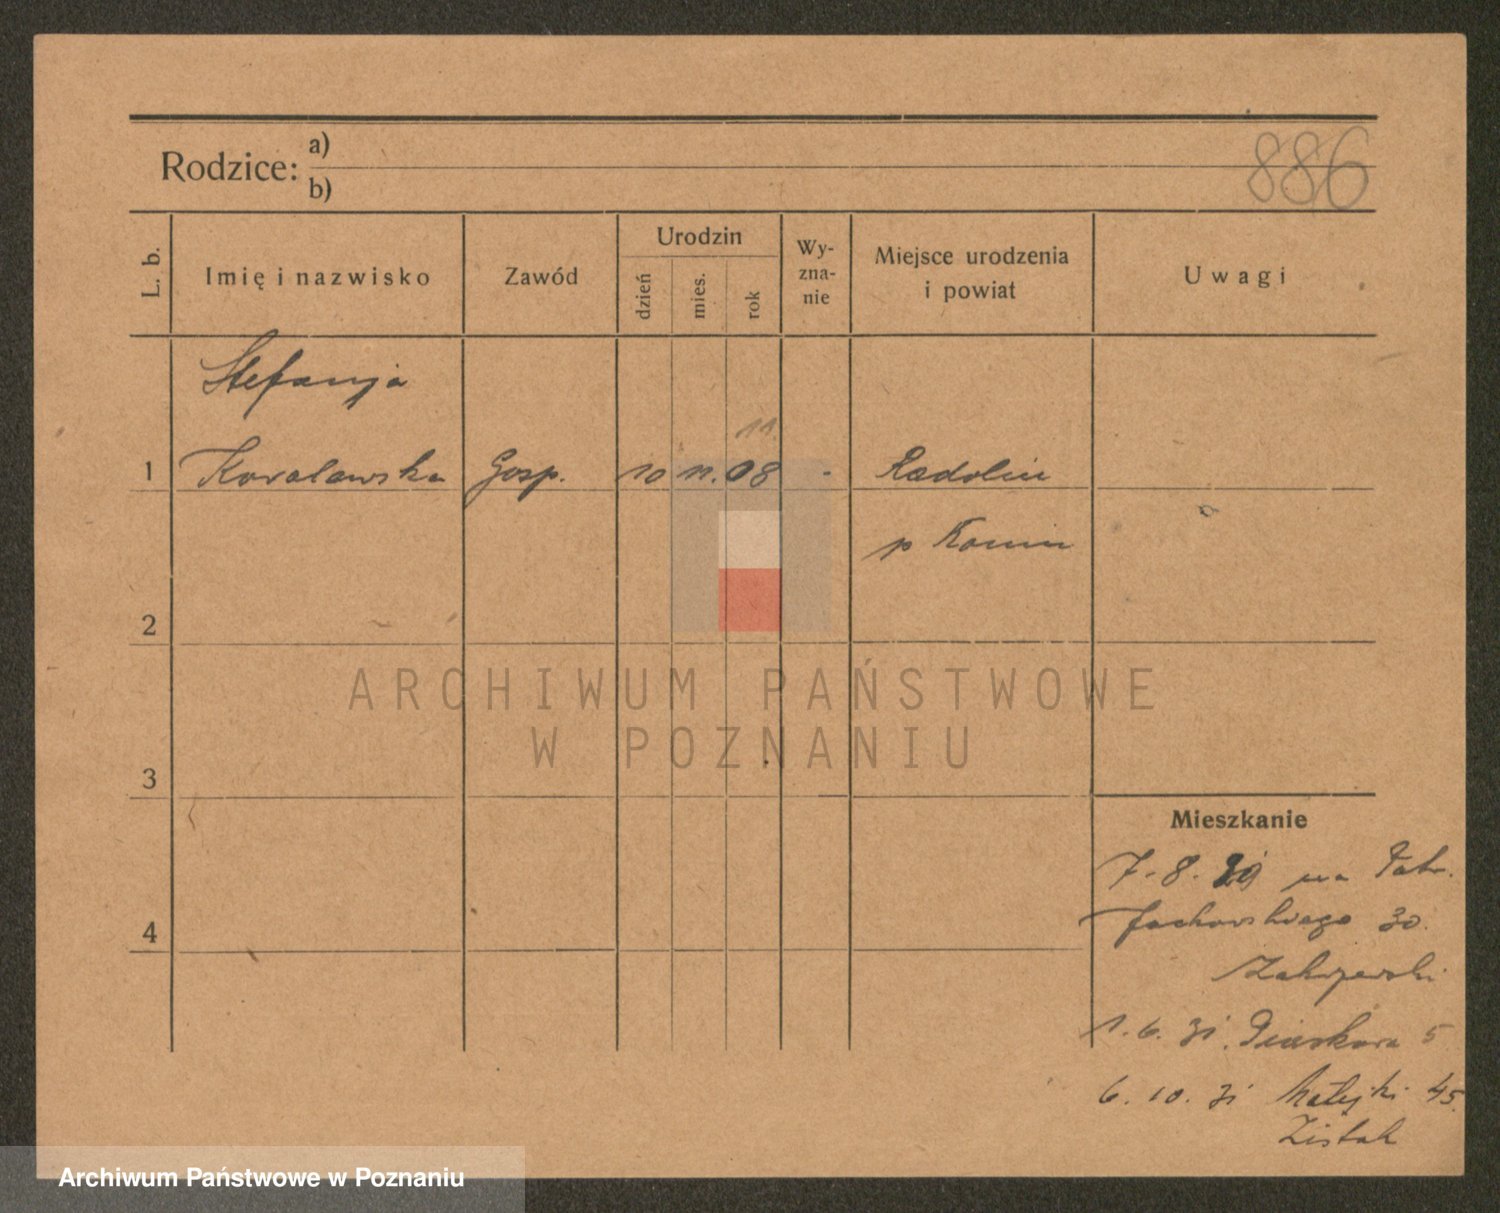 886
Rodzice: a)
b)
L. b.
Imię i nazwisko
Zawód
Urodzin
dzień
mies.
rok
Wy-
zna-
nie
Miejsce urodzenia
i powiat
Uwagi
Stefanja
11
1 Kowalewska Gosp. 10 11. 08 - Radolin
p Konin
2
ARCHIWUM PAŃSTWOWE
W POZNANIU
3
Mieszkanie
7. 8. na
4 30.
Zakrzewski
1. 6. 31. Piaskowa 5
6. 10. 31 Matejki 45.
Archiwum Państwowe w Poznaniu